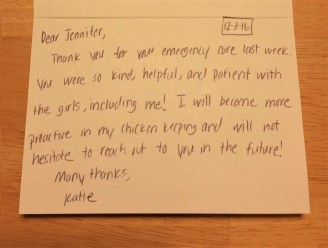 12-3-16
Dear Jennifer,
Thank you for your emergency care last week.
You were so kind, helpful, and patient with
the girls, including me! I will become more
proactive in my chicken keeping and will not
hesitate to reach out to you in the future!
Many thanks,
Katie